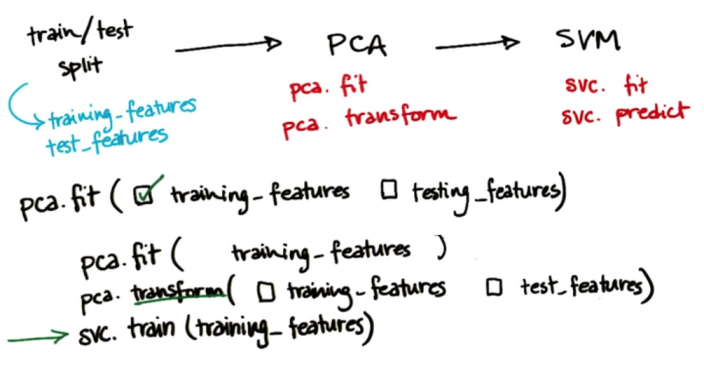 train/test
split
PCA
SVM
training_features
test_features
pca. fit
pca. transform
svc. fit
svc. predict
pca.fit ( ☑ training_features ☐ testing_features)
pca.fit ( training_features )
pca. transform( ☐ training_features ☐ test_features)
svc. train (training_features)